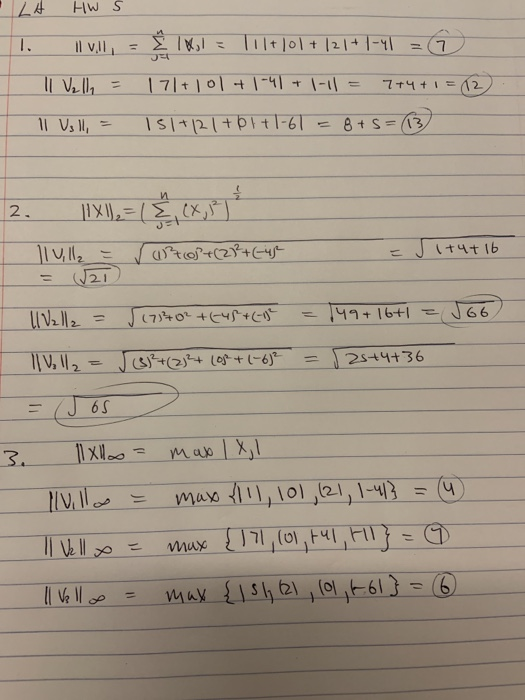 LA HW 5
1. ||V₁||₁ = Σⁿⱼ₌₁ |Xⱼ| = |1|+|0|+|2|+|-4| = 7
||V₂||₁ = |7|+|0|+|-4|+|-1| = 7+4+1 = 12
||V₃||₁ = |5|+|2|+|0|+|-6| = 8+5 = 13
2. ||X||₂ = (Σⁿⱼ₌₁ (Xⱼ)²)^½
||V₁||₂ = √(1)²+(0)²+(2)²+(-4)² = √1+4+16
= √21
||V₂||₂ = √(7)²+0²+(-4)²+(-1)² = √49+16+1 = √66
||V₃||₂ = √(5)²+(2)²+(0)²+(-6)² = √25+4+36
= √65
3. ||X||∞ = max |Xⱼ|
||V₁||∞ = max {|1|, |0|, |2|, |-4|} = 4
||V₂||∞ = max {|7|, |0|, |-4|, |-1|} = 7
||V₃||∞ = max {|5|, |2|, |0|, |-6|} = 6